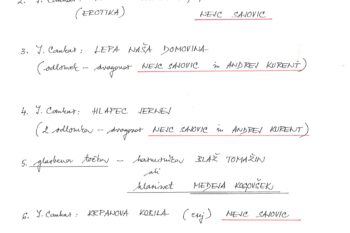 2. I. Cankar:
(EROTIKA) NEJC SAJOVIC
3. I. Cankar: LEPA NAŠA DOMOVINA
(odlomek – dvogovor NEJC SAJOVIC in ANDREJ KURENT)
4. I. Cankar: HLAPEC JERNEJ
(2 odlomka – dvogovor NEJC SAJOVIC in ANDREJ KURENT)
5. glasbena točka – harmonika BLAŽ TOMAŽIN
ali
klarinet MEDEJA KOROVŠEK
6. I. Cankar: KREPANOVA KOBILA NEJC SAJOVIC